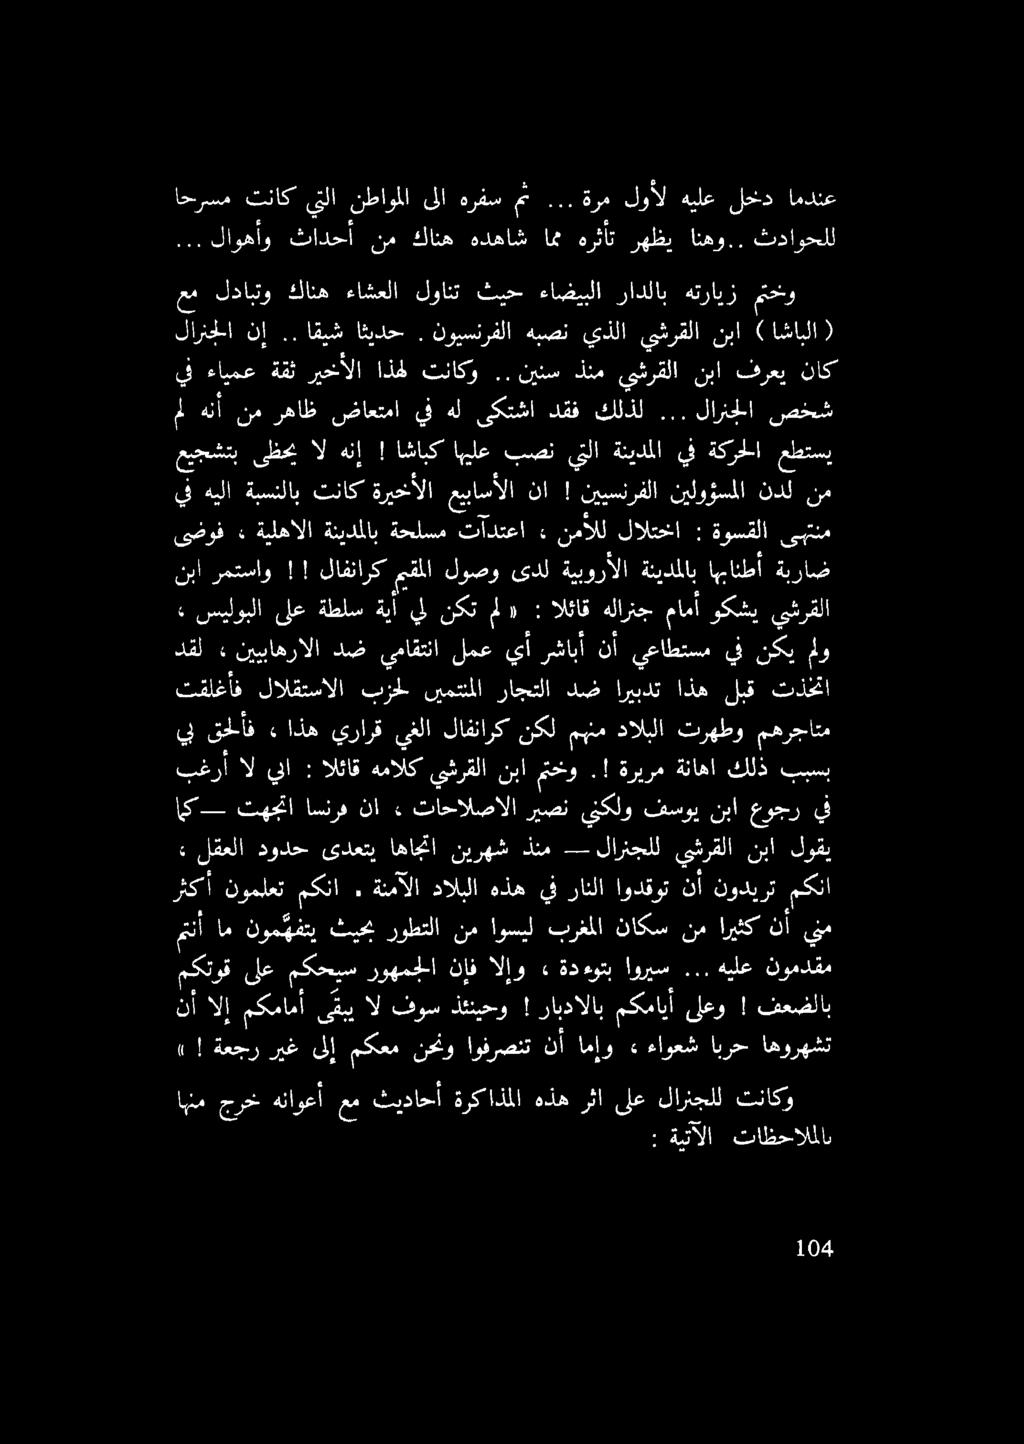 عندما دخل عليه لأول مرة ... ثم سفره الى المواطن التي كانت مسرحا
للحوادث .. وهنا يظهر تأثره مما شاهده هناك من أحداث وأهوال ...
وختم زيارته بالدار البيضاء حيث تناول العشاء هناك وتبادل مع
( الباشا ) ابن القرشي الذي نصبه الفرنسيون . حديثا شيقا .. إن الجنرال
كان يعرف ابن القرشي منذ سنين .. وكانت لهذا الأخير ثقة عمياء في
شخص الجنرال ... لذلك فقد اشتكى له في امتعاض ظاهر من أنه لم
يستطع الحركة في المدينة التي نصب عليها كباشا ! إنه لا يحظى بتشجيع
من لدن المسؤولين الفرنسيين ! ان الأسابيع الأخيرة كانت بالنسبة اليه في
منتهى القسوة : اختلال للأمن ، اعتدآت مسلحة بالمدينة الاهلية ، فوضى
ضاربة أطنابها بالمدينة الأروبية لدى وصول المقيم كرانفال ! ! واستمر ابن
القرشي يشكو أمام جنراله قائلا : « لم تكن لي أية سلطة على البوليس ،
ولم يكن في مستطاعي أن أباشر أي عمل انتقامي ضد الارهابيين ، لقد
اتخذت قبل هذا تدبيرا ضد التجار المنتمين لحزب الاستقلال فأغلقت
متاجرهم وطهرت البلاد منهم لكن كرانفال الغي قراري هذا ، فألحق بي
بسبب ذلك اهانة مريرة ! . وختم ابن القرشي كلامه قائلا : اني لا أرغب
في رجوع ابن يوسف ولكني نصير الاصلاحات ، ان فرنسا اتجهت — كما
يقول ابن القرشي للجنرال — منذ شهرين اتجاها يتعدى حدود العقل ،
انكم تريدون أن توقدوا النار في هذه البلاد الآمنة . انكم تعلمون أكثر
مني أن كثيرا من سكان المغرب ليسوا من التطور بحيث يتفهَّمون ما أنتم
مقدمون عليه ... سيروا بتوءدة ، وإلا فإن الجمهور سيحكم على قوتكم
بالضعف ! وعلى أيامكم بالادبار ! وحينئذ سوف لا يبقَى أمامكم إلا أن
تشهروها حربا شعواء ، وإما أن تنصرفوا ونحن معكم إلى غير رجعة ! »
وكانت للجنرال على اثر هذه المذاكرة أحاديث مع أعوانه خرج منها
بالملاحظات الآتية :
104